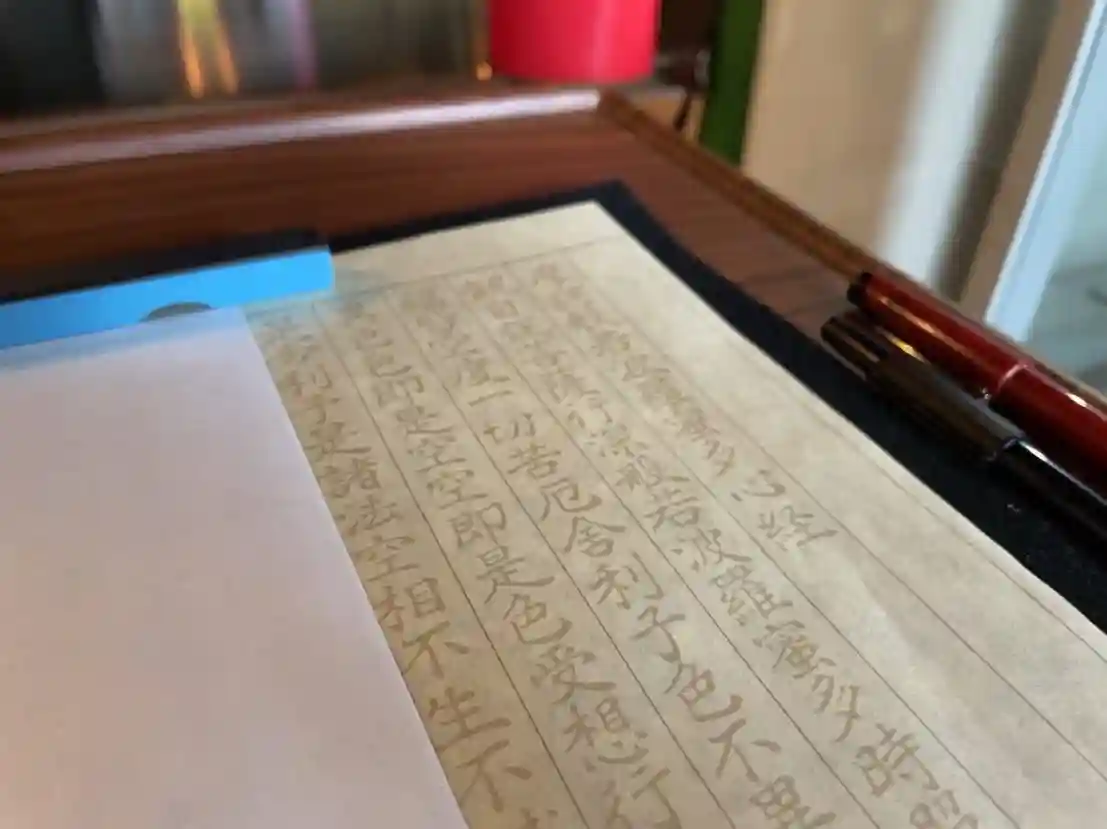 波羅蜜多心経
自在菩薩行深般若波羅蜜多時照
空度一切苦厄舎利子色不異
色色即是空空即是色受想行
舎利子是諸法空相不生不